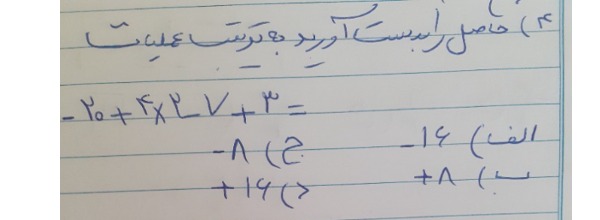 ۴) حاصل را بدست آورید به ترتیب عملیات
-۲۰+۴×۲-۷+۳=
الف) -۱۶ ج) -۸
ب) +۸ د) +۱۶